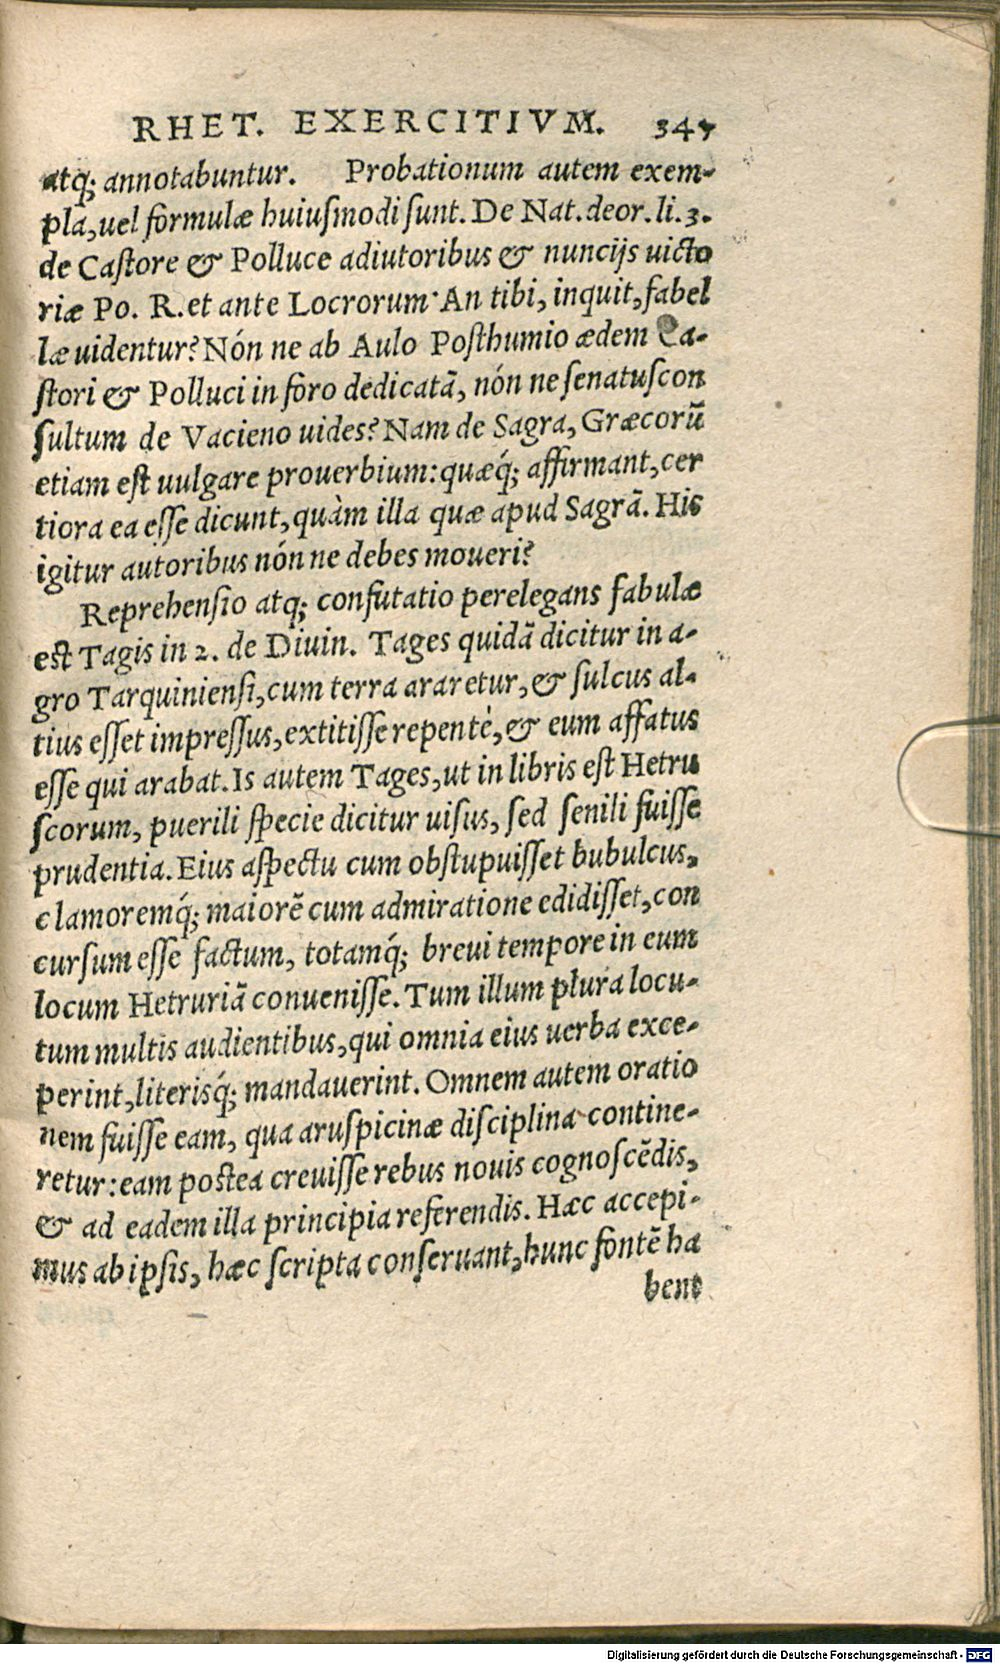 RHET. EXERCITIVM. 347
atq; annotabuntur. Probationum autem exem-
pla, uel formulæ huiusmodi sunt. De Nat. deor. li. 3.
de Castore & Polluce adiutoribus & nuncijs uicto
riæ Po. R. et ante Locrorum· An tibi, inquit, fabel
læ uidentur? Nón ne ab Aulo Posthumio ædem Ca-
stori & Polluci in foro dedicatā, nón ne senatuscon
sultum de Vacieno uides? Nam de Sagra, Græcorū
etiam est uulgare prouerbium: quæq́; affirmant, cer
tiora ea esse dicunt, quàm illa quæ apud Sagrā. His
igitur autoribus nón ne debes moueri?
Reprehensio atq; confutatio perelegans fabulæ
est Tagis in 2. de Diuin. Tages quidā dicitur in a-
gro Tarquiniensi, cum terra araretur, & sulcus al-
tius esset impressus, extitisse repentè, & eum affatus
esse qui arabat. Is autem Tages, ut in libris est Hetru
scorum, puerili specie dicitur uisus, sed senili fuisse
prudentia. Eius aspectu cum obstupuisset bubulcus,
clamoremq́; maiorē cum admiratione edidisset, con
cursum esse factum, totamq́; breui tempore in eum
locum Hetruriā conuenisse. Tum illum plura locu-
tum multis audientibus, qui omnia eius uerba exce-
perint, literisq́; mandauerint. Omnem autem oratio
nem fuisse eam, qua aruspicinæ disciplina contine-
retur: eam postea creuisse rebus nouis cognoscēdis,
& ad eadem illa principia referendis. Hæc accepi-
mus ab ipsis, hæc scripta conseruant, hunc fontē ha
bent
Digitalisierung gefördert durch die Deutsche Forschungsgemeinschaft - DFG